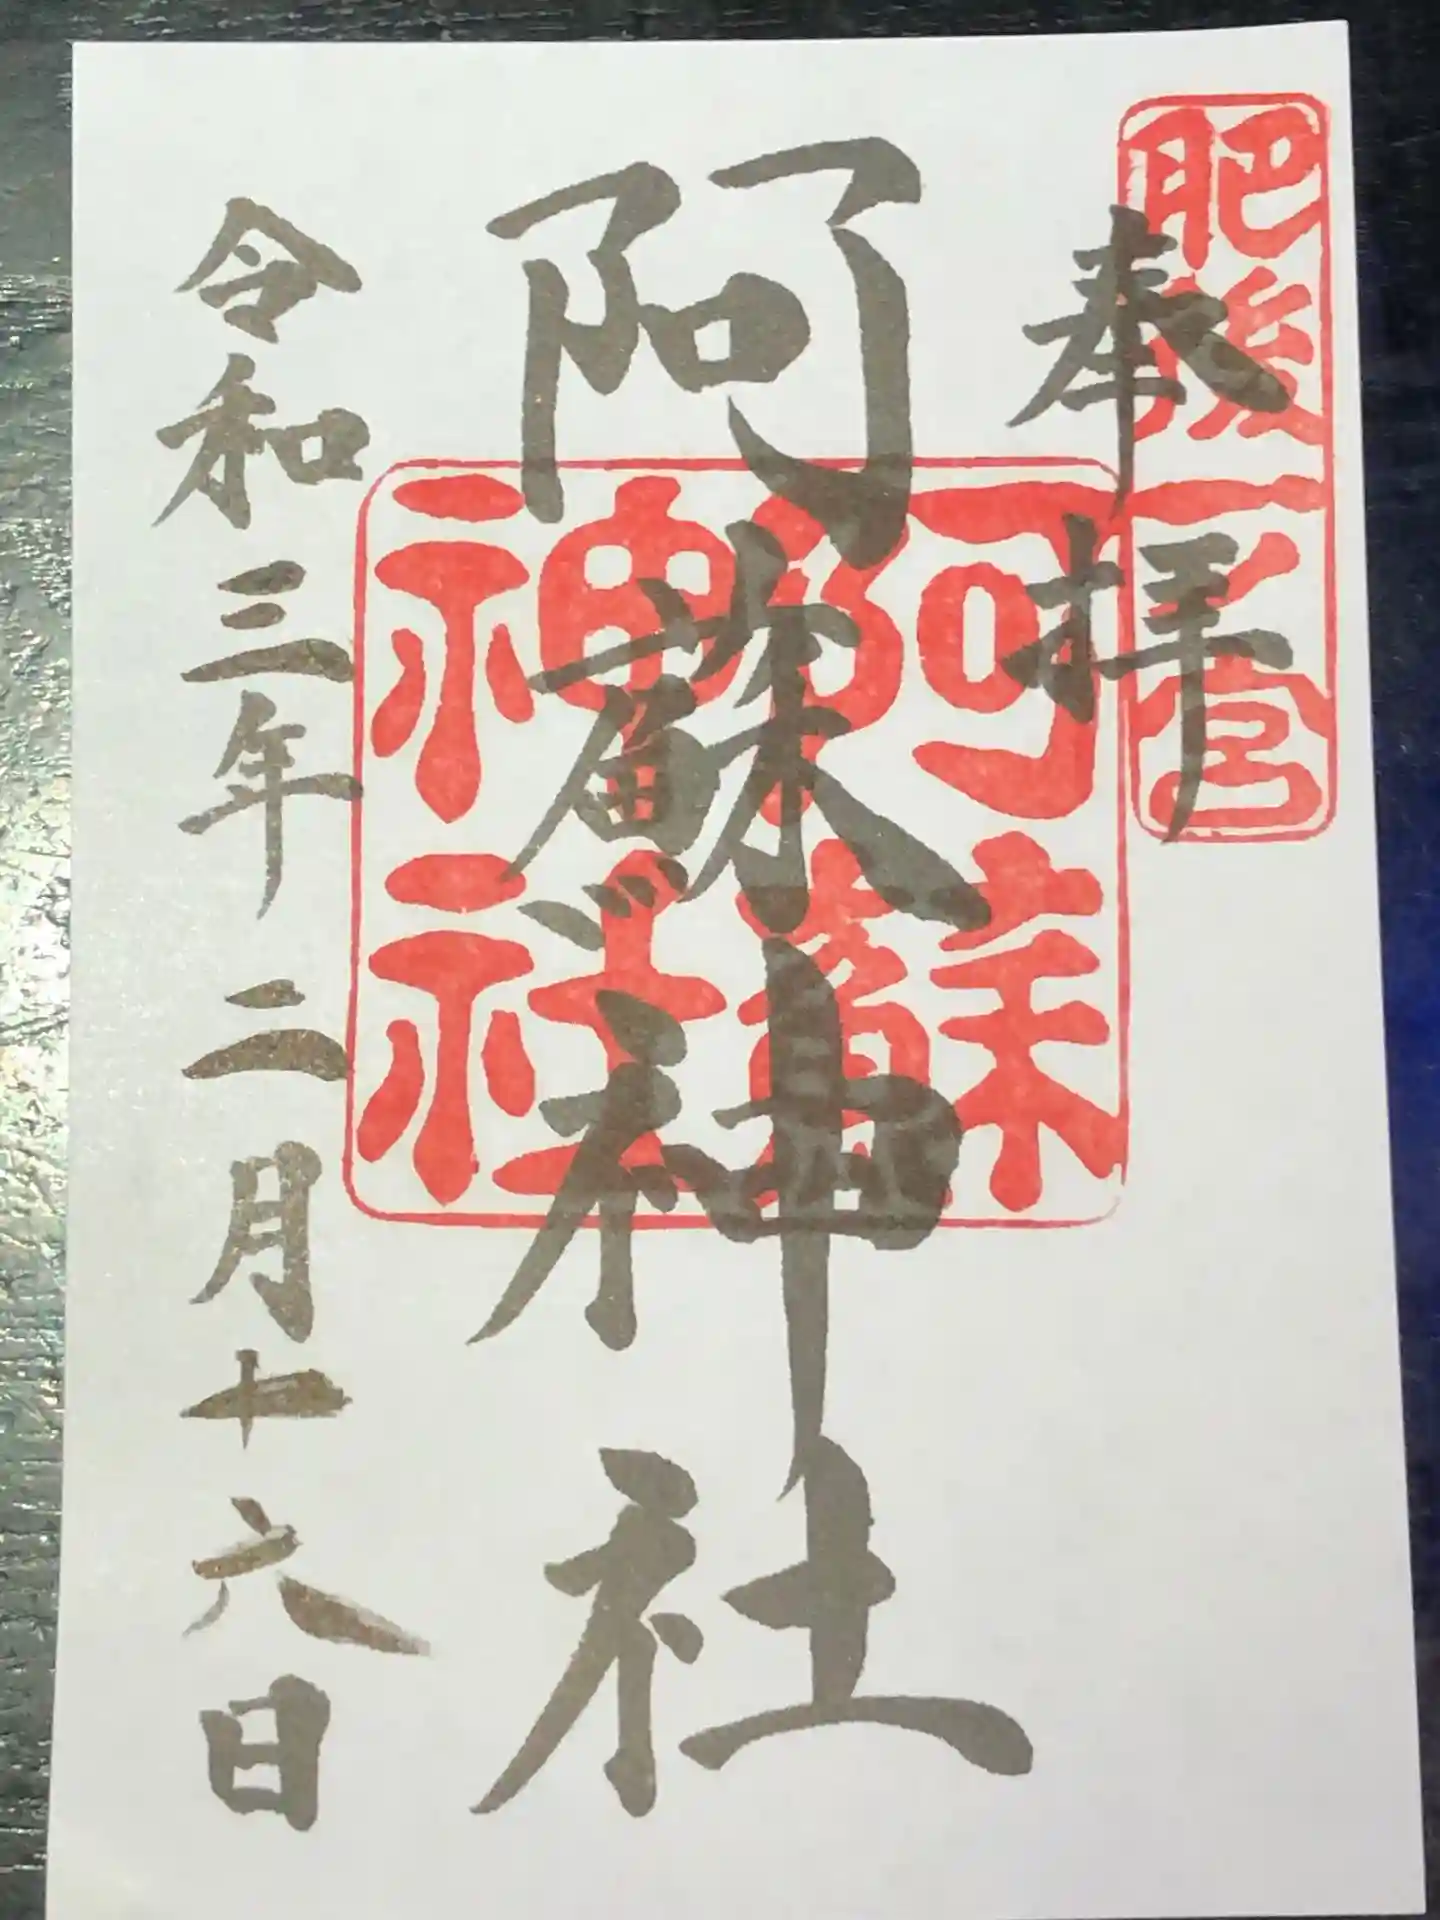 肥後一之宮
奉拝
阿蘇神社
阿蘇
神社
令和三年二月十六日